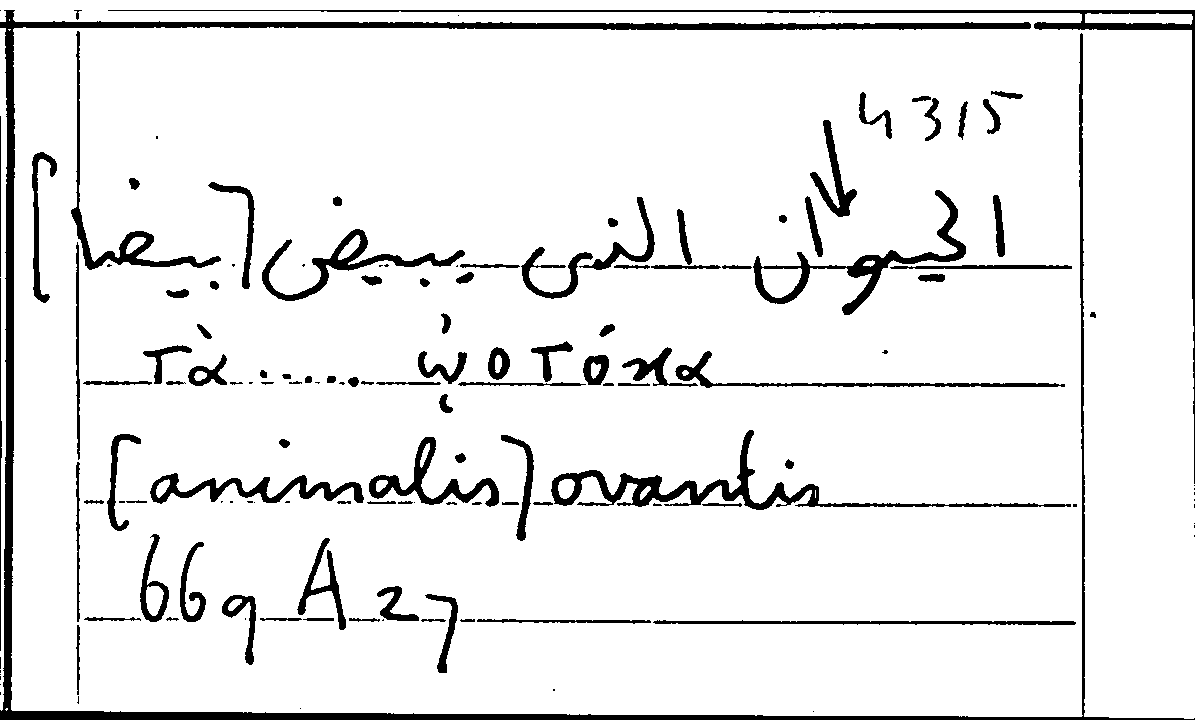 4315
الحيوان الذى يبيض [بيضا]
τὰ ..... ᾠοτόκα
[animalis] ovantis
669 A 27